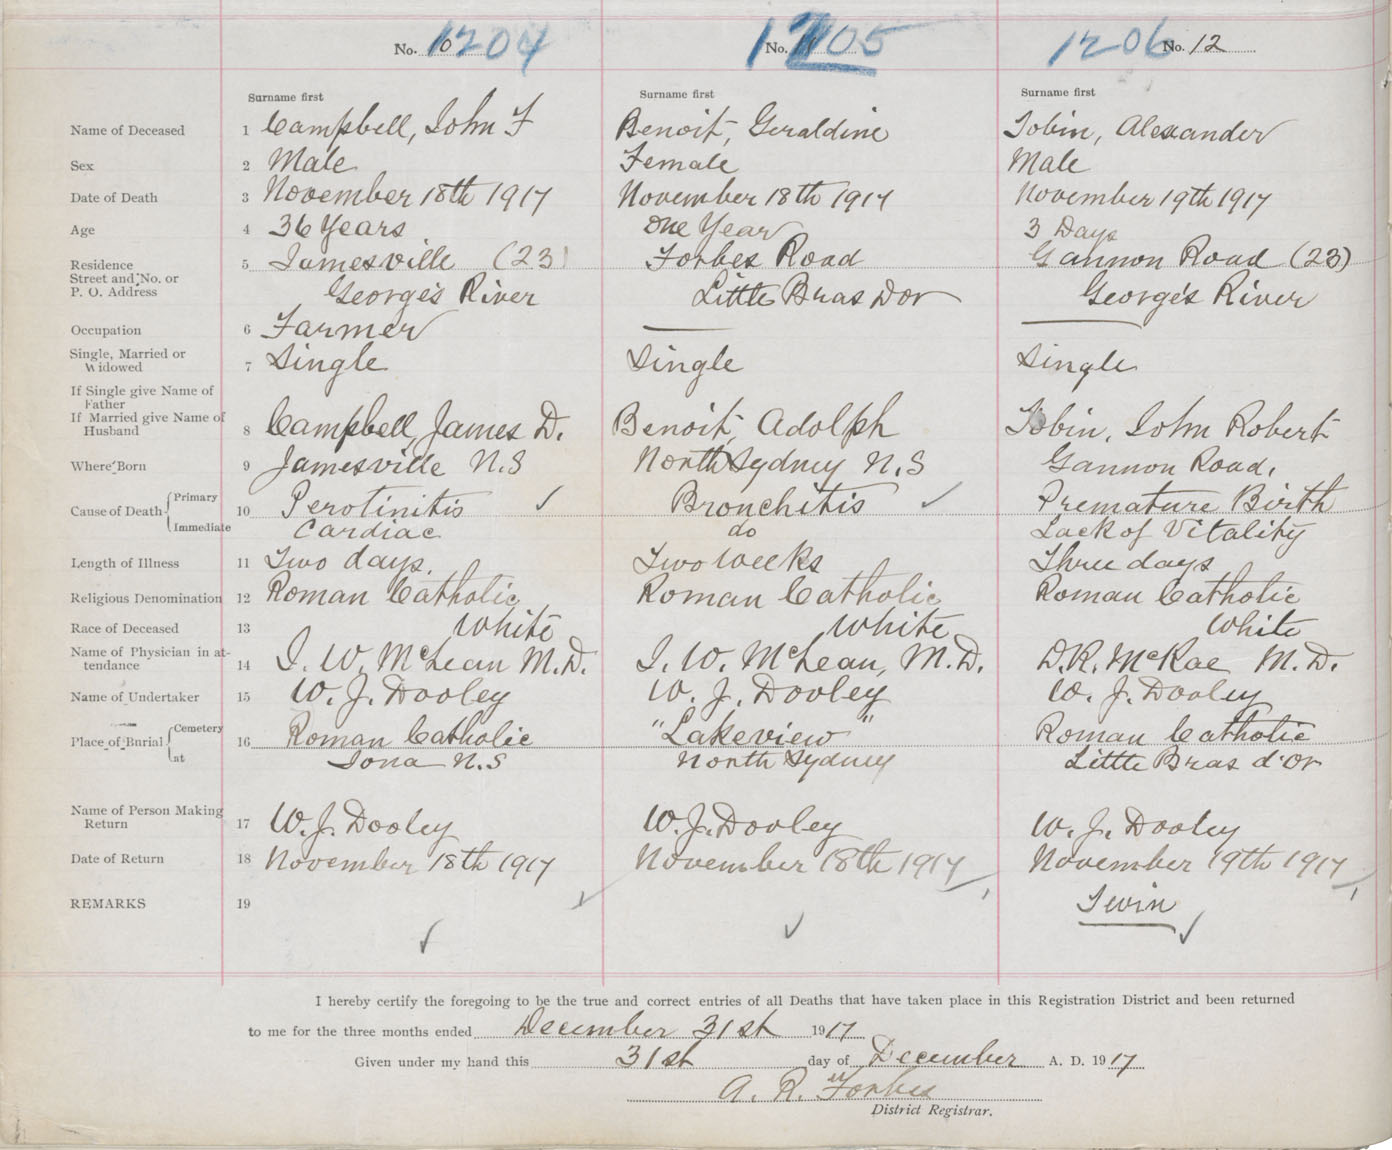 No. 10 1204
No. 11 1205
1206 No. 12
Surname first Surname first Surname first
Name of Deceased 1 Campbell, John F Benoit, Geraldine Tobin, Alexander
Sex 2 Male Female Male
Date of Death 3 November 18th 1917 November 18th 1917 November 19th 1917
Age 4 36 Years One Year 3 Days
Residence 5 Jamesville (23) Forbes Road Gannon Road (23)
Street and No. or
P. O. Address George's River Little Bras Dor George's River
Occupation 6 Farmer
Single, Married or
Widowed 7 Single Single Single
If Single give Name of
Father
If Married give Name of
Husband 8 Campbell, James D. Benoit, Adolph Tobin, John Robert
Where Born 9 Jamesville N.S North Sydney N.S Gannon Road.
Cause of Death Primary 10 Perotinitis Bronchitis Premature Birth
Immediate Cardiac do Lack of Vitality
Length of Illness 11 Two days. Two weeks Three days
Religious Denomination 12 Roman Catholic Roman Catholic Roman Catholic
Race of Deceased 13 White White White
Name of Physician in at-
tendance 14 J. W. McLean M.D. J. W. McLean, M.D. D.R. McRae M.D.
Name of Undertaker 15 W. J. Dooley W. J. Dooley W. J. Dooley
Place of Burial Cemetery 16 Roman Catholic "Lakeview" Roman Catholic
at Iona N.S North Sydney Little Bras d'Or
Name of Person Making
Return 17 W. J. Dooley W. J. Dooley W. J. Dooley
Date of Return 18 November 18th 1917 November 18th 1917 November 19th 1917
REMARKS 19 Twin
I hereby certify the foregoing to be the true and correct entries of all Deaths that have taken place in this Registration District and been returned
to me for the three months ended December 31st 1917
Given under my hand this 31st day of December A. D. 1917
A. R. Forbes
District Registrar.